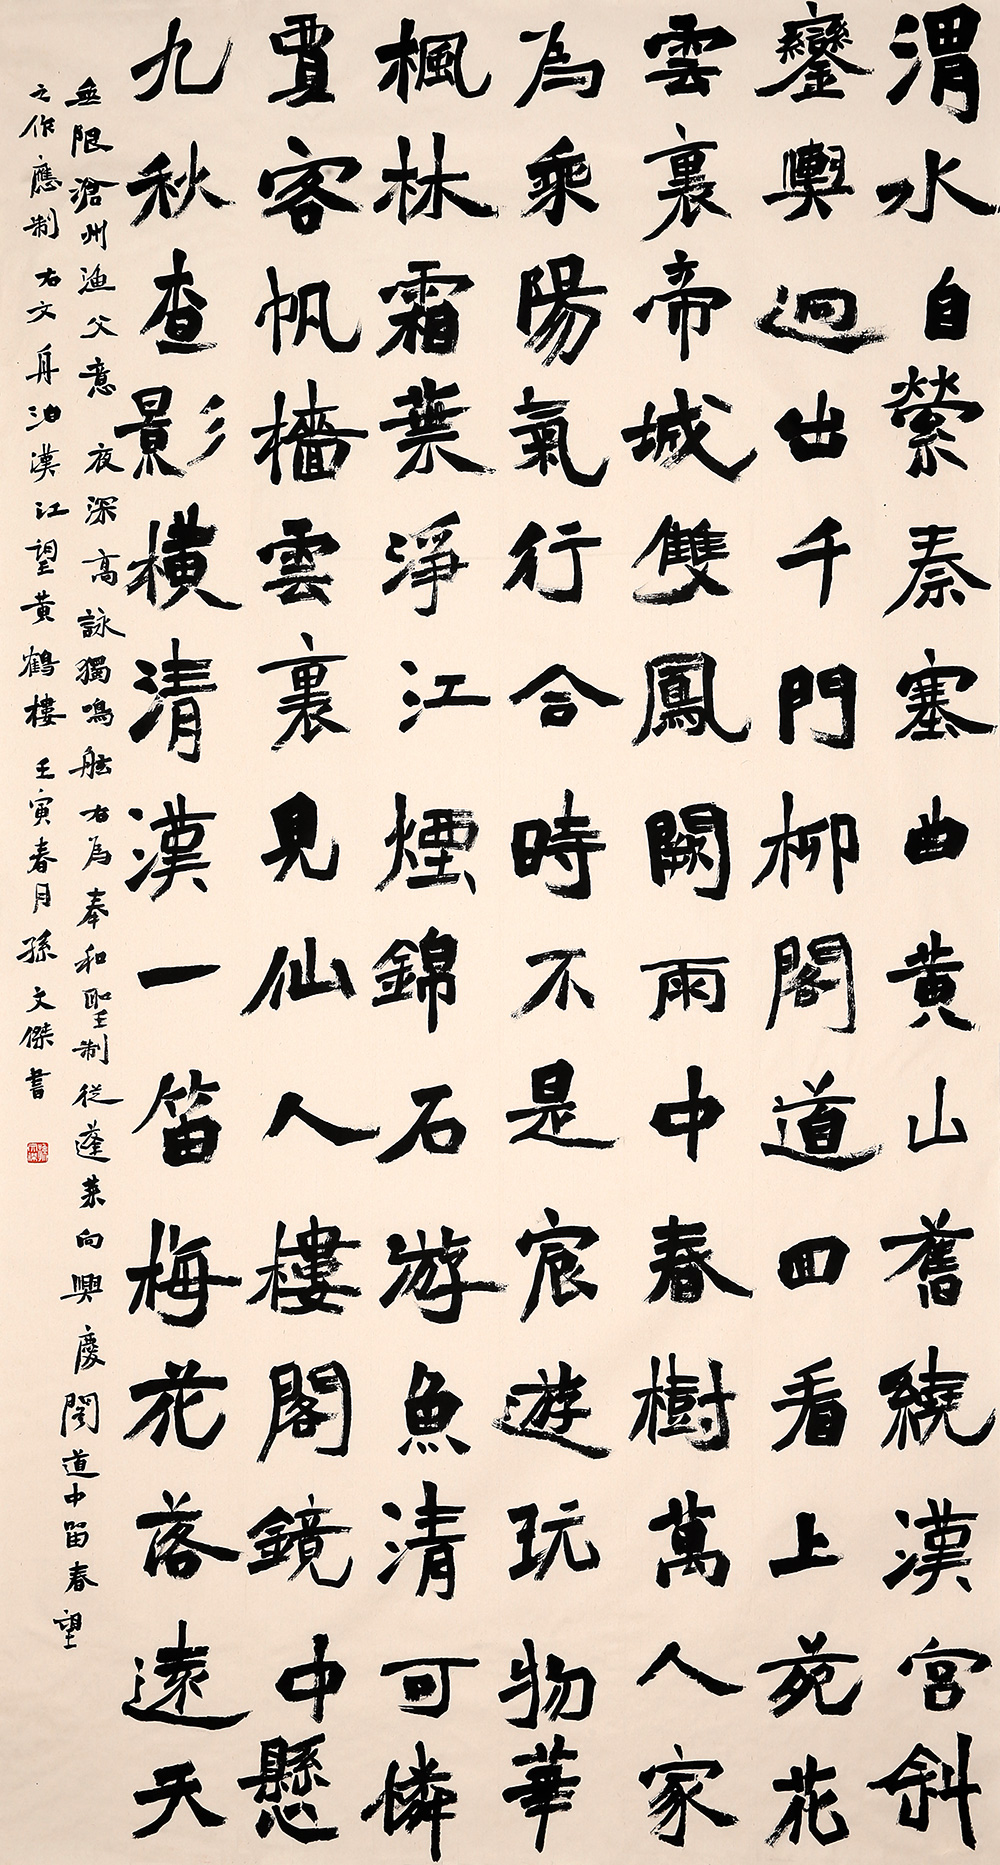 渭水自縈秦塞曲黃山舊繞漢宮斜
鑾輿迥出千門柳閣道回看上苑花
雲裏帝城雙鳳闕雨中春樹萬人家
為乘陽氣行合時不是宸遊玩物華
楓林霜葉淨江煙錦石游魚清可憐
賈客帆檣雲裏見仙人樓閣鏡中懸
九秋查影橫清漢一笛梅花落遠天
無限滄州漁父意 夜深高詠獨鳴舷 右為奉和聖制從蓬萊向興慶閣道中留春望
之作應制 右文舟泊漢江望黃鶴樓 壬寅春月孫文傑書